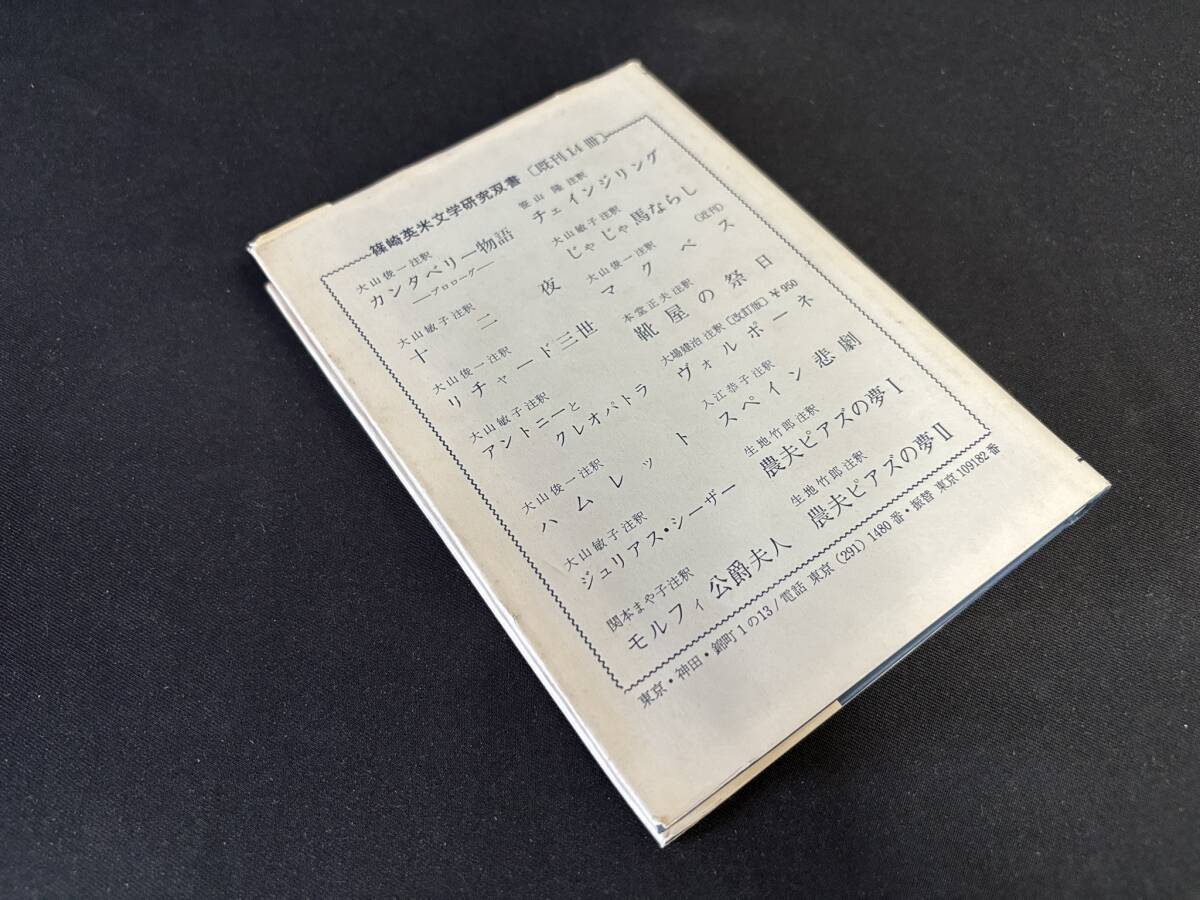 篠崎英米文学研究双書 〔既刊14冊〕
大山俊一注釈
カンタベリー物語
――プロローグ――
大山敏子注釈
十二夜
大山俊一注釈
リチャード三世
大山敏子注釈
アントニーと
クレオパトラ
大山俊一注釈
ハムレット
大山敏子注釈
ジュリアス・シーザー
関本まや子注釈
モルフィ公爵夫人
笹山隆注釈
チェインジリング
大山敏子注釈
じゃじゃ馬ならし
大山俊一注釈 (近刊)
マクベス
本堂正夫注釈
靴屋の祭日
大場建治注釈〔改訂版〕¥950
ヴォルポーネ
入江恭子注釈
スペイン悲劇
生地竹郎注釈
農夫ピアズの夢I
生地竹郎注釈
農夫ピアズの夢II
東京・神田・錦町1の13/電話 東京(291)1480番・振替 東京109182番